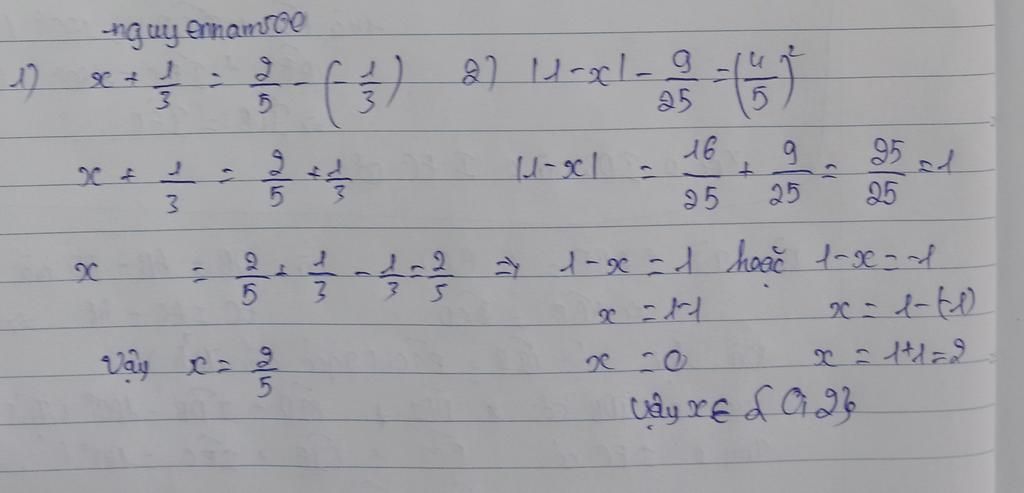 nguyennam500
1) x + 1/3 = 2/5 - (-1/3) 2) |1-x| - 9/25 = (4/5)²
x + 1/3 = 2/5 + 1/3 |1-x| = 16/25 + 9/25 = 25/25 = 1
x = 2/5 + 1/3 - 1/3 = 2/5 => 1-x = 1 hoặc 1-x = -1
x = 1-1 x = 1-(-1)
Vậy x = 2/5 x = 0 x = 1+1 = 2
Vậy x ∈ {0; 2}